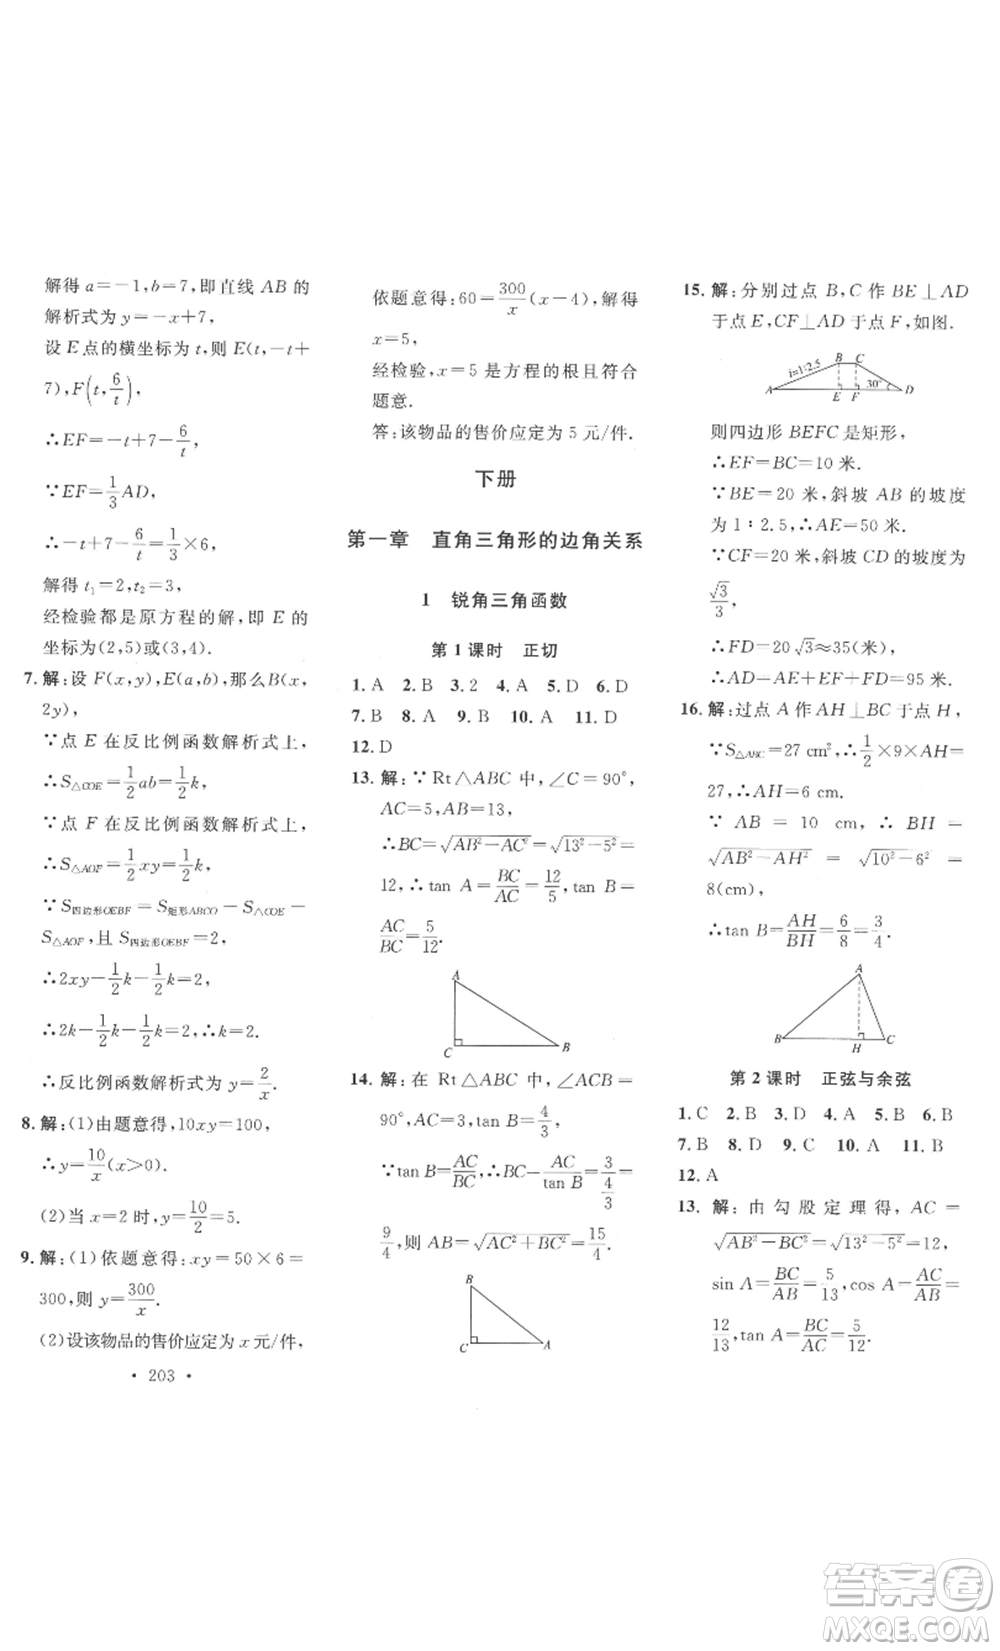 解得a=-1,b=7,即直线 AB 的
解析式为 y=-x+7,
设 E 点的横坐标为 t,则 E(t,-t+
7),F(t,6/t),
∴EF=-t+7-6/t,
∵EF=1/3AD,
∴-t+7-6/t=1/3×6,
解得 t₁=2,t₂=3,
经检验都是原方程的解,即 E 的
坐标为(2,5)或(3,4).
7. 解:设 F(x,y),E(a,b),那么B(x,
2y),
∵点 E 在反比例函数解析式上,
∴S△COE=1/2ab=1/2k,
∵点 F 在反比例函数解析式上,
∴S△AOF=1/2xy=1/2k,
∵S四边形OEBF=S矩形ABCO-S△COE-
S△AOF,且 S四边形OEBF=2,
∴2xy-1/2k-1/2k=2,
∴2k-1/2k-1/2k=2,∴k=2.
∴反比例函数解析式为 y=2/x.
8. 解:(1)由题意得,10xy=100,
∴y=10/x(x>0).
(2)当 x=2 时,y=10/2=5.
9. 解:(1)依题意得:xy=50×6=
300,则 y=300/x.
(2)设该物品的售价应定为 x 元/件,
· 203 ·
依题意得:60=300/x(x-4),解得
x=5,
经检验,x=5 是方程的根且符合
题意.
答:该物品的售价应定为 5 元/件.
下册
第一章 直角三角形的边角关系
1 锐角三角函数
第 1 课时 正切
1. A 2. B 3. 2 4. A 5. D 6. D
7. B 8. A 9. B 10. A 11. D
12. D
13. 解:∵Rt△ABC 中,∠C=90°,
AC=5,AB=13,
∴BC=√(AB²-AC²)=√(13²-5²)=
12,∴tan A=BC/AC=12/5,tan B=
AC/BC=5/12.
A
C
B
14. 解:在 Rt△ABC 中,∠ACB=
90°,AC=3,tan B=4/3,
∵tan B=AC/BC,∴BC=AC/tan B=3/(4/3)=
9/4,则 AB=√(AC²+BC²)=15/4.
B
C
A
15. 解:分别过点 B,C 作 BE⊥AD
于点 E,CF⊥AD 于点 F,如图.
B C
i=1:2.5
30°
A E F D
则四边形 BEFC 是矩形,
∴EF=BC=10 米.
∵BE=20 米,斜坡 AB 的坡度
为 1∶2.5,∴AE=50 米.
∵CF=20 米,斜坡 CD 的坡度为
√3/3,
∴FD=20√3≈35(米),
∴AD=AE+EF+FD=95 米.
16. 解:过点 A 作 AH⊥BC 于点 H,
∵S△ABC=27 cm²,∴1/2×9×AH=
27,∴AH=6 cm.
∵ AB = 10 cm,∴ BH =
√(AB²-AH²) = √(10²-6²) =
8(cm),
∴tan B=AH/BH=6/8=3/4.
A
B H C
第 2 课时 正弦与余弦
1. C 2. B 3. D 4. A 5. B 6. B
7. B 8. D 9. C 10. A 11. B
12. A
13. 解:由勾股定理得,AC=
√(AB²-BC²)=√(13²-5²)=12,
sin A=BC/AB=5/13,cos A=AC/AB=
12/13,tan A=BC/AC=5/12.
答案卷
MXQE.COM